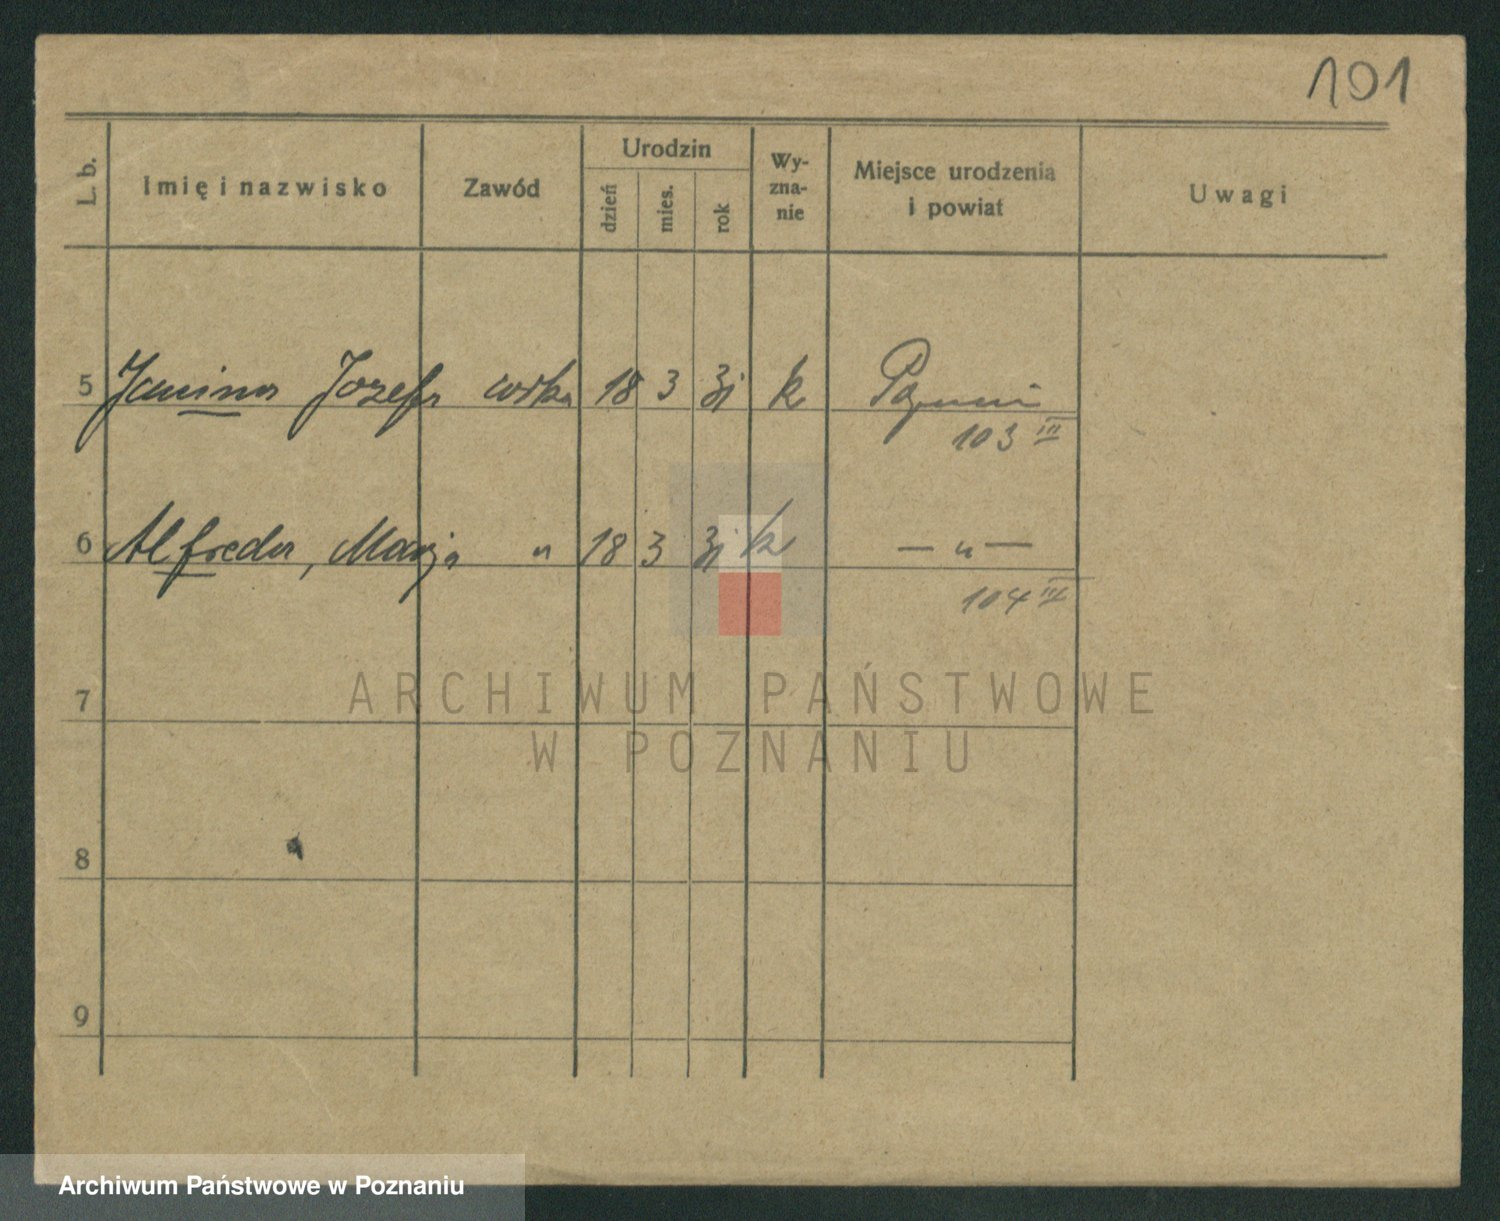 101
L. b. Imię i nazwisko Zawód Urodzin dzień mies. rok Wy-zna-nie Miejsce urodzenia i powiat Uwagi
5 Janina Józefa córka 18 3 31 k
103 III
6 Alfreda, Marja " 18 3 31 k — " —
104 IV
7
ARCHIWUM PAŃSTWOWE
W POZNANIU
8
9
Archiwum Państwowe w Poznaniu